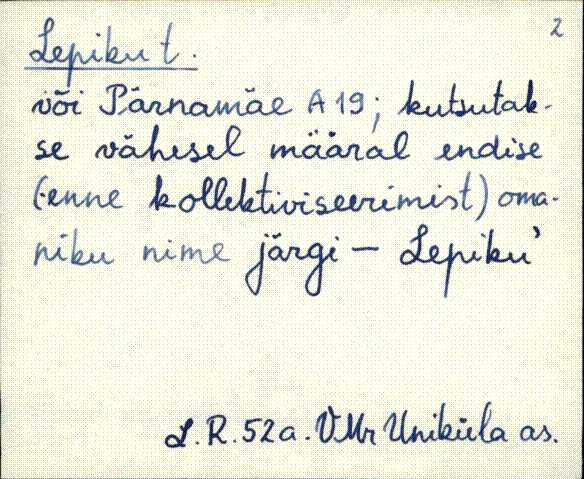 2
Lepiku t.
või Pärnamäe A 19; kutsutak-
se vähesel määral endise
(enne kollektiviseerimist) oma-
niku nime järgi – Lepiku'
L. R. 52 a. VMr Uniküla as.